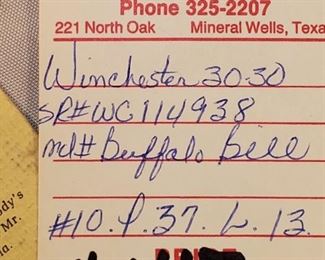 Phone 325-2207
221 North Oak Mineral Wells, Texa
Winchester 30-30
SR# WC114938
md# Buffalo Bill
#10. P. 37. L. 13.
dy's
Mr.